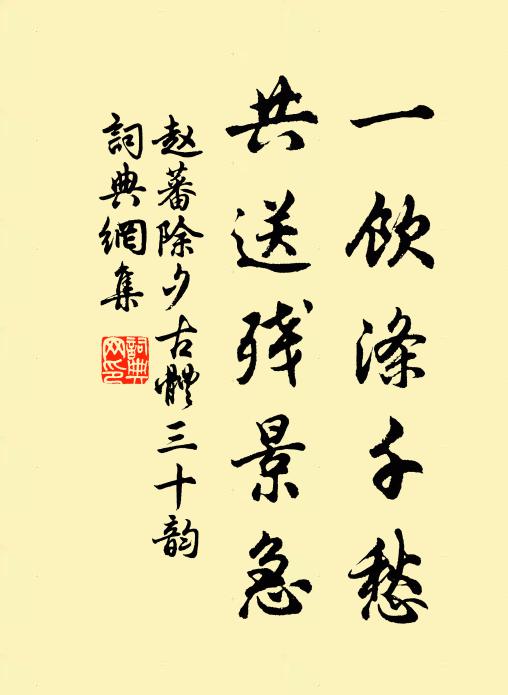 一饮涤千愁
共送残景急
赵蕃除夕古體三十韵
詞典網集
詞典网印